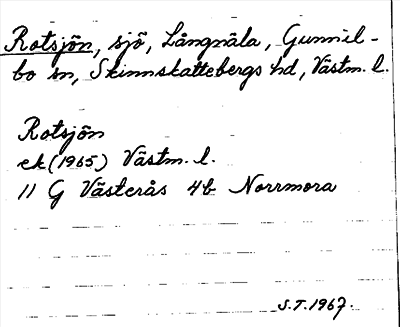 Rotsjön, sjö, Långnäla, Gunnil-
bo sn, Skinnskattebergs hd, Västm. l.
Rotsjön
ek (1965) Västm. l.
11 G Västerås 4b Norrmora
S.T. 1967.